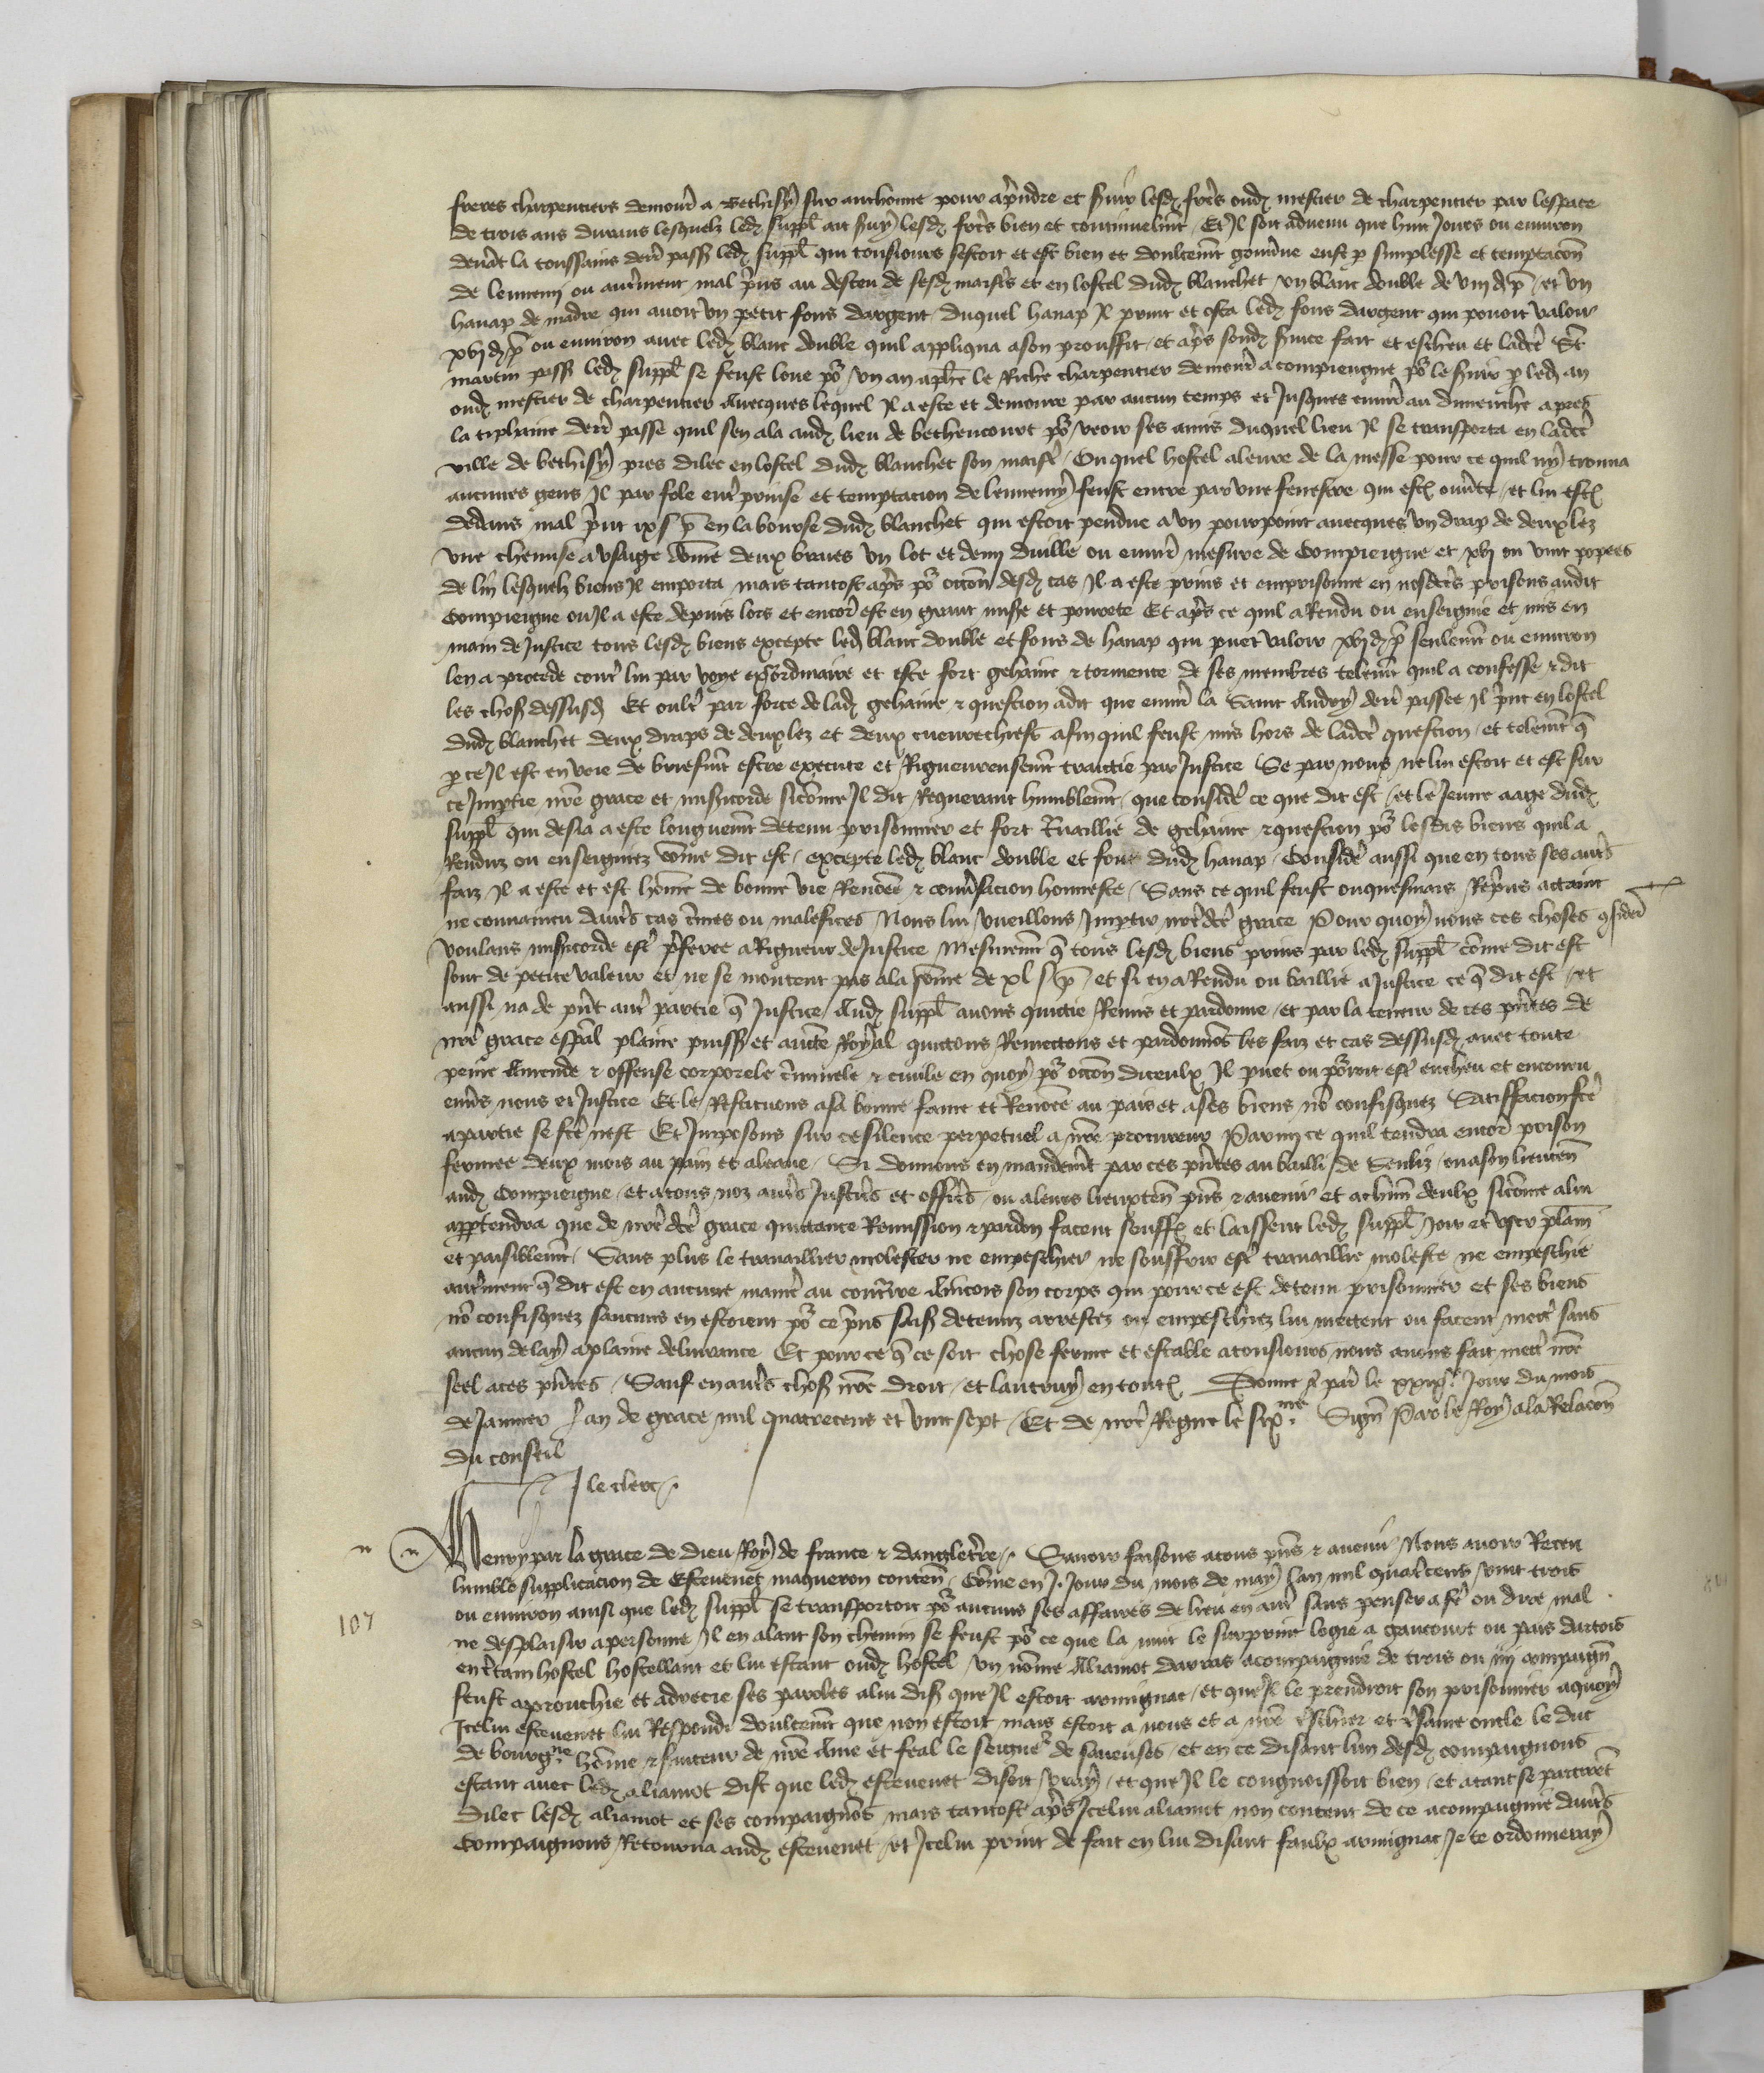 freres charpentiers demourans a Bethisy sur authonne pour aprendre et seruir lesd freres oud mestier de charpentier par lespace
de trois ans durans lesquelz led suppl ait seruy lesd freres bien et continuelmt Et Il soit aduenu que huit Jours ou enuiron
deuant la toussains derr passe led suppl qui tousiours sestoit et est bien et doulcemt gouuerne eust p simplesse et temptacon
de lennemi ou autrement mal prins au desceu de sesd maistres et en lostel dud blanchet vn blanc double de viij d p et vn
hanap de madre qui auoit vn petit fons dargent duquel hanap Il print et osta led fons dargent qui pouoit valoir
xvj d p ou enuiron auec led blanc double quil appliqua a son prouffit et apres sond seruice fait et escheu et ladcte St
martin passe led suppl se feust loue po vn an a le Riche charpentier demourt a compiengne po le seruir p led an
oud mestier de charpentier Auecques lequel Il a este et demoure par aucun temps et Jusques enuir au dimenche apres
la tiphaine derr passe quil sen ala aud lieu de bethencourt po veoir ses amis duquel lieu Il se transporta en ladcte
ville de bethisy pres dilec en lostel dud blanchet son maistre Ou quel hostel aleure de la messe pour ce quil ny trouua
aucunes gens Il par fole entreprinse et temptacion de lennemy feust entre par vne fenestre qui est ouuerte et lui est
dedans mal print ix s p en la bourse dud blanchet qui estoit pendue a vn pourpoint auecques vn drap de deux lez
vne chemise a vsaige domme deux braies vn lot et demi duille ou enuir mesure de Compiengne et xvj ou vint popees
de lin lesquelz biens Il emporta mais tantost apres po occon desd cas Il a este prins et emprisonne en nosdctes prisons audit
Compiengne ou Il a este depuis lors et encor est en grant misere et pourete Et apres ce quil a Rendu ou enseignie et mis en
main de Justice tous lesd biens excepte led blanc double et fons de hanap qui puet valoir xvj d p seulemt ou enuiron
len a procede contre lui par voye extraordinaire et este fort gehaine & tormente de ses membres telemt quil a confesse & dit
les choses dessusd Et oultre par force de lad gehaine & question a dit que enuir la Saint Andry derr passee Il print en lostel
dud blanchet deux draps de deux lez et deux cueurechiefs afin quil feust mis hors de ladcte question et telemt q
p ce Il est en voie de briefmt estre execute et Rigueureusemt traictie par Justice Se par nous ne lui estoit et est sur
ce Impartie nre grace et misericorde sicomme Il dit Requerant humblemt que considere ce que dit est et le Jeune aage dud
suppl qui desia a este longuemt detenu prisonnier et fort trauaillie de gehaine & question po lesdis biens quil a
Renduz ou enseignez come dit est excepte led blanc double et fons dud hanap Considere aussi que en tous ses autres
faiz Il a este et est home de bonne vie Renomee & conuersacion honneste Sans ce quil feust onquesmais Reprins attaint
ne conuaincu dautres cas crimes ou malefices Nous lui vueillons Impartir nredcte grace Pour quoy nous ces choses considere
voulans misericorde estre preferee a Rigueur de Justice Mesmemt q tous lesd biens prins par led suppl come dit est
sont de petite valeur et ne se montent pas ala some de xl s p et si en a Rendu ou baillie a Justice ce q dit est et
aussi na de pnt autre partie q Justice Aud suppl auons quictie Remis et pardonne et par la teneur de ces pntes de
nre grace espal plaine puissance et aucte Royal quictons Remettons et pardonnos les faiz et cas dessusd auec toute
peine Amende & offense corporele criminele & ciuile en quoy po occon diceulx Il puet ou pourroit estre encheu et encouru
enuers nous et Justice Et le Restituons a sa bonne fame et Renomee au pais et a ses biens no confisquez Satisfacion fcte
a partie se fcte nest Et Imposons sur ce silence perpetuel a nre procureur Parmi ce quil tendra encor prison
fermee deux mois au pain et aleaue Si donnons en mandemt par ces pntes au bailli de Senliz ou a son lieuten
aud Compiengne et a tous noz autres Justices et officiers ou a leurs lieuxten pns & auenir et achun deulx sicome a lui
appartendra que de nredcte grace quittance Remission & pardon facent seuffr et laissent led suppl Joir et vser plainem
et paisiblemt Sans plus le trauaillier molester ne empeschier ne souffrir estre trauaillie moleste ne empeschie
autrement q dit est en aucune maniere au contraire Aincois son corps qui pour ce est detenu prisonnier et ses biens
no confisquez saucuns en estoient po ce prins saisiz detenuz arrestez ou empeschiez lui mettent ou facent mettre sans
aucun delay a plaine deliurance Et pour ce q ce soit chose ferme et estable a tousiours nous auons fait mettre nre
seel a ces pntes Sauf en autres choses nre droit et lautruy en toutes Donne a par le xxix Jour du mois
de Januier lan de grace mil quatrecens et vint sept Et de nre Regne le six me Sign Par le Roy ala Relacon
du conseil
J le clerc
Henry par la grace de Dieu Roy de france & dangleterre Sauoir faisons a tous pns & auenir Nous auoir Receu
lumble supplicacion de Esteuenet maqueron conten Come en J Jour du mois de may lan mil quatrecens vint trois
107
ou enuiron ainsi que led suppl se transportoit po aucuns ses affaires de lieu en autre sans penser a fre ou dire mal
ne desplaisir a personne Il en alant son chemin se feust po ce que la nuit le surprint logie a gaucourt ou pais dartois
en certain hostel hostellant et lui estant oudz hostel vn nome Aliamot darras acompaignie de trois ou iiij compaign
feust aprouchie et adrecie ses paroles a lui dist que Il estoit armignac et que Il le prendroit son prisonnier a quoy
Icelui esteuenet lui Respondi doulcemt que non estoit mais estoit a nous et a nre treschier et tresame oncle le duc
de bourgne home & seruiteur de nre Ame et feal le seigneur de saueuses et en ce disant lun desd compaignons
estant auec led aliamot dist que led esteuenet disoit vray et que Il le congnoissoit bien et atant se partirent
dilec lesd aliamot et ses compaignos mais tantost apres Icelui aliamot non content de ce acompaignie dautres
Compaignons Retourna aud esteuenet et Icelui print de fait en lui disant faulx armignac Je te ordonneray